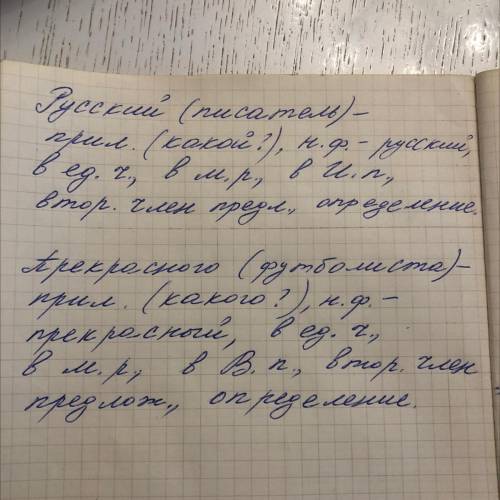 Русский (писатель) –
прил. (какой?), н.ф. – русский,
в ед. ч., в м.р., в И.п.,
втор. член предл., определение.
Прекрасного (футболиста) –
прил. (какого?), н.ф. –
прекрасный, в ед. ч.,
в м.р., в В.п., втор. член
предлож., определение.